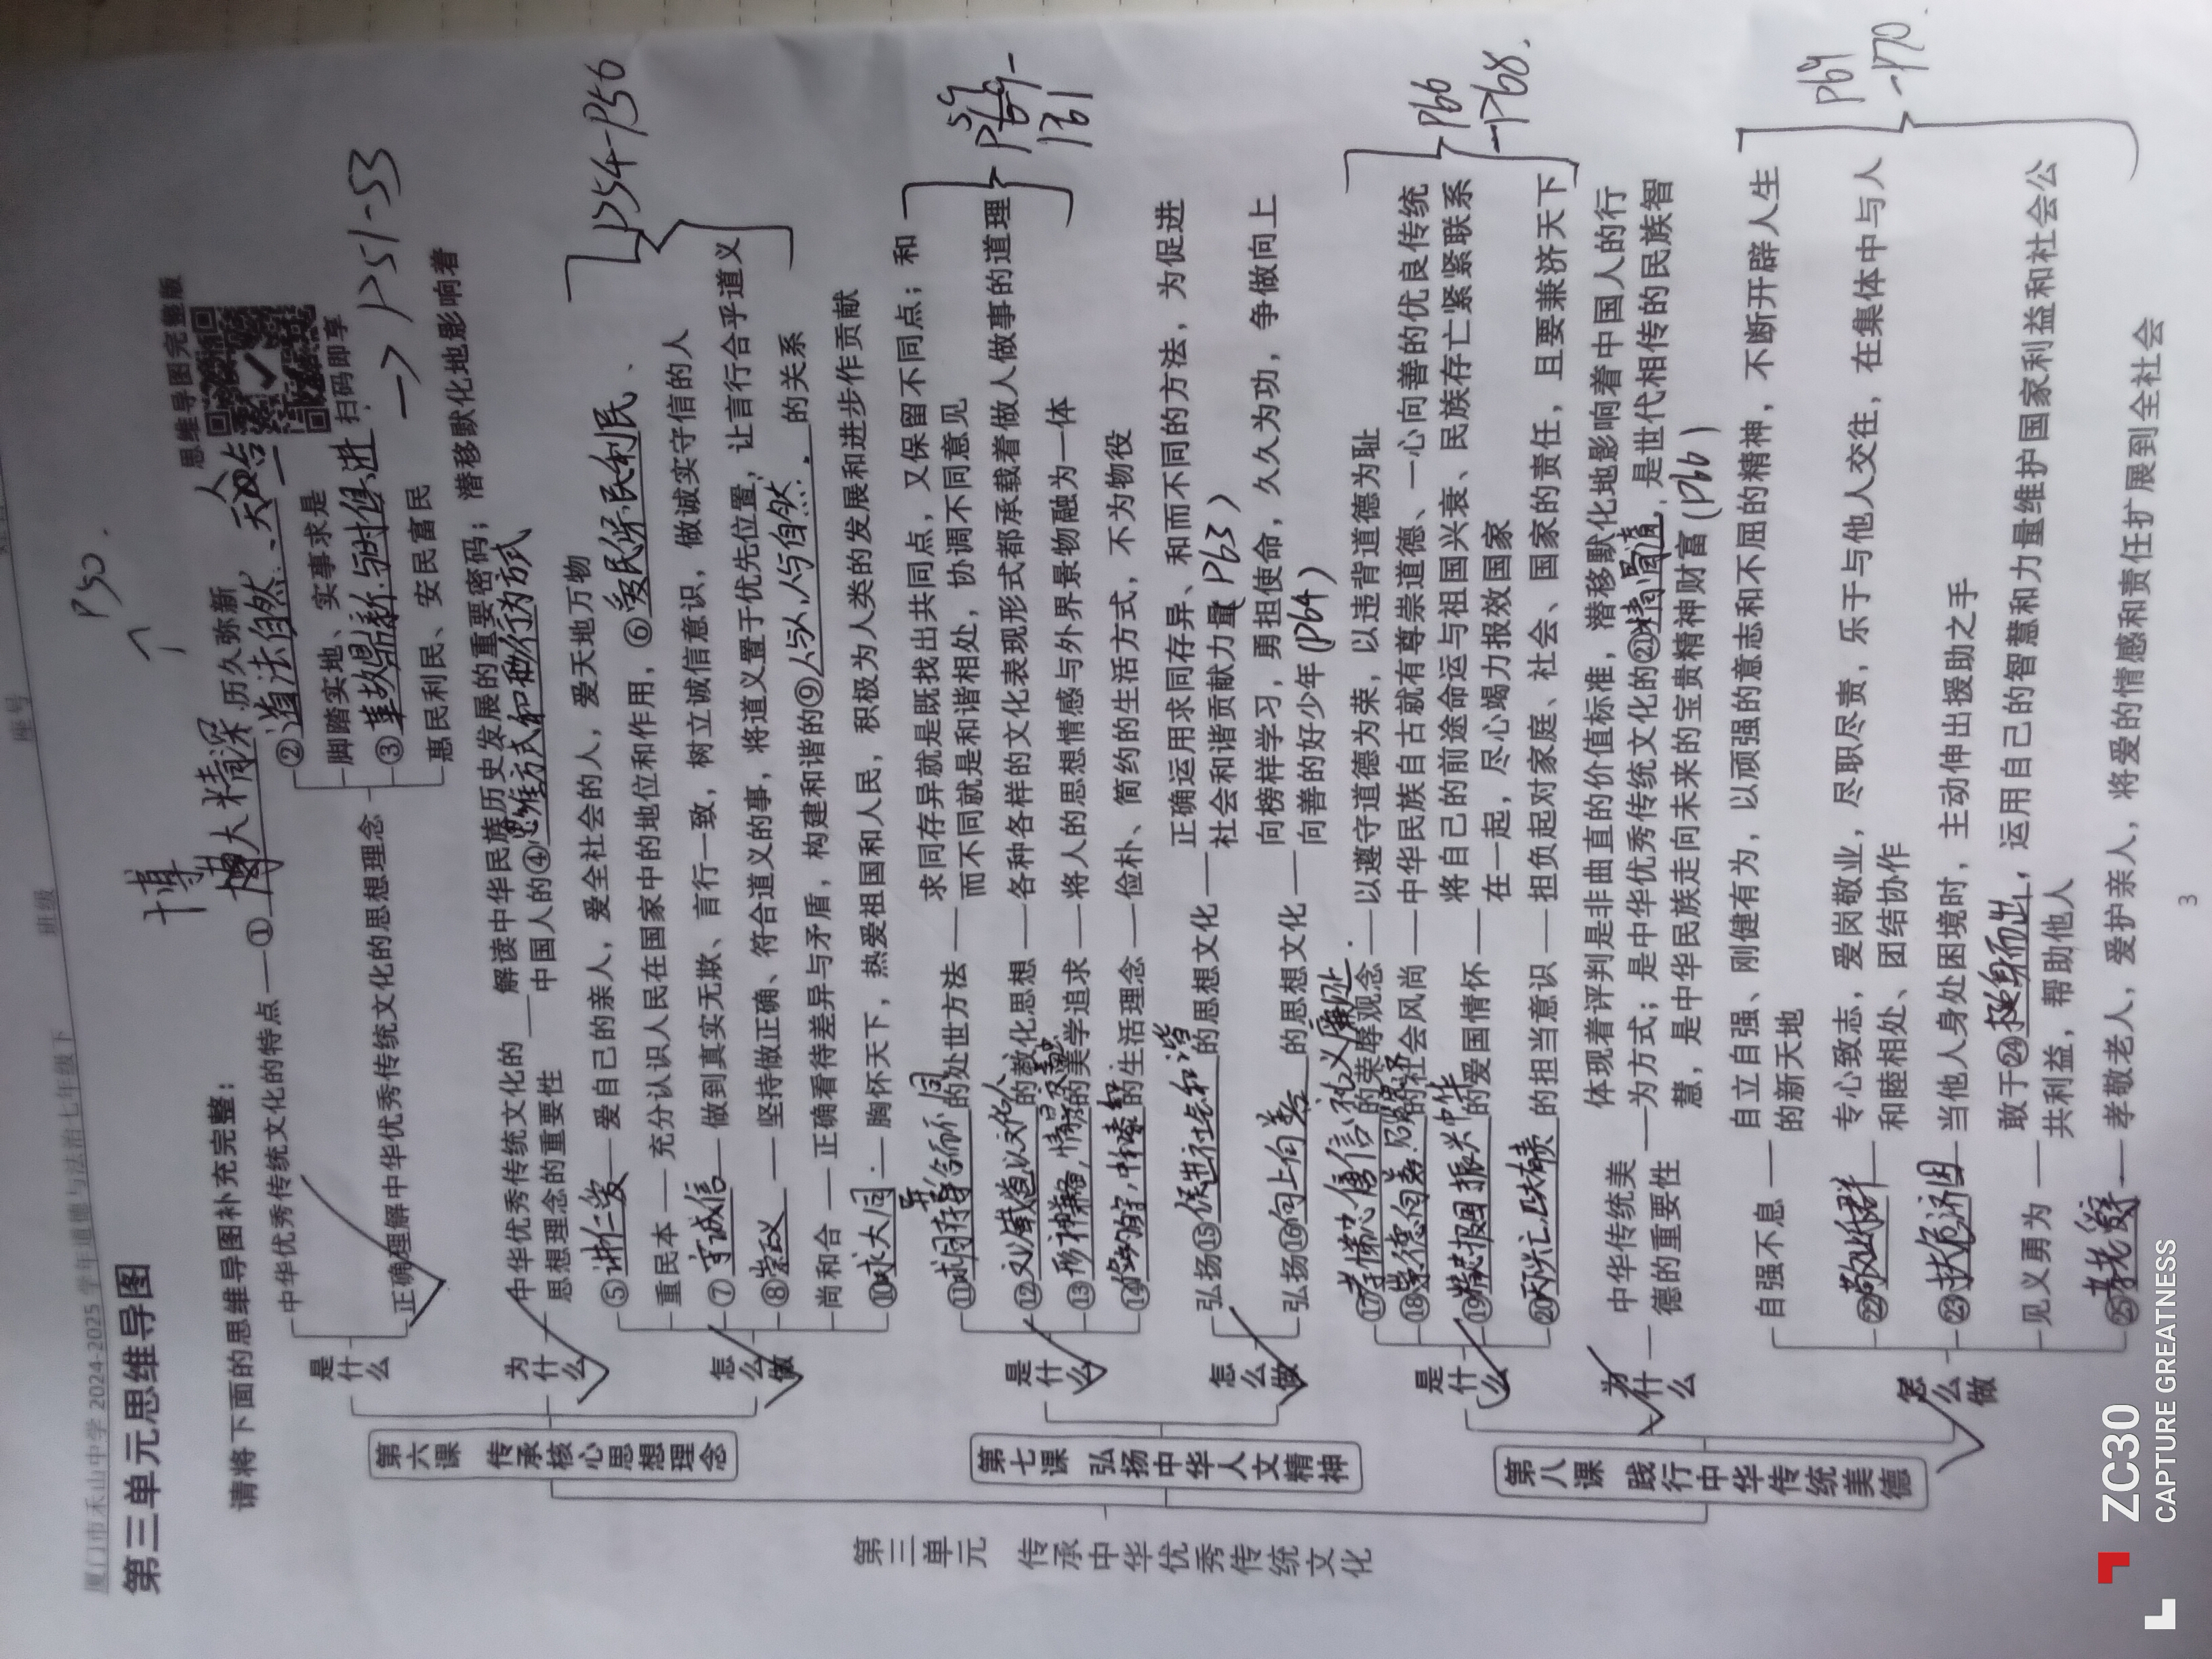 厦门市禾山中学 2024-2025 学年道德与法治七年级下 班级 座号
第三单元思维导图
P50.
请将下面的思维导图补充完整：
思维导图完整版
扫码即享
第三单元 传承中华优秀传统文化
第六课 传承核心思想理念
是什么
中华优秀传统文化的特点——①博大精深 历久弥新
博
正确理解中华优秀传统文化的思想理念
②道法自然、天人合一
脚踏实地、实事求是
③革故鼎新、与时俱进
惠民利民、安民富民
→P51-53
为什么
中华优秀传统文化的思想理念的重要性
解读中华民族历史发展的重要密码；潜移默化地影响着
中国人的④思维方式和行为方式
怎么做
⑤讲仁爱——爱自己的亲人，爱全社会的人，爱天地万物
重民本——充分认识人民在国家中的地位和作用，⑥爱民乐民利民、
⑦守诚信——做到真实无欺、言行一致，树立诚信意识，做诚实守信的人
⑧崇正义——坚持做正确、符合道义的事，将道义置于优先位置，让言行合乎道义
尚和合——正确看待差异与矛盾，构建和谐的⑨人与人，人与自然.的关系
⑩求大同——胸怀天下，热爱祖国和人民，积极为人类的发展和进步作贡献
P54-P56
第七课 弘扬中华人文精神
是什么
⑪求同存异和而不同的处世方法——求同存异就是既找出共同点，又保留不同点；和
而不同就是和谐相处，协调不同意见
⑫文以载道以文化人的教化思想——各种各样的文化表现形式都承载着做人做事的道理
⑬形神兼备，情景交融的美学追求——将人的思想情感与外界景物融为一体
⑭俭约自守，中和泰和的生活理念——俭朴、简约的生活方式，不为物役
P59-
P61
怎么做
弘扬⑮促进社会和谐的思想文化——正确运用求同存异、和而不同的方法，为促进
社会和谐贡献力量（P63）
弘扬⑯向上向善的思想文化——向榜样学习，勇担使命，久久为功，争做向上
向善的好少年（P64）
第八课 践行中华传统美德
是什么
⑰孝悌忠信礼义廉耻的荣辱观念——以遵守道德为荣，以违背道德为耻
⑱崇德向善.见贤思齐的社会风尚——中华民族自古就有尊崇道德、一心向善的优良传统
⑲精忠报国振兴中华的爱国情怀——将自己的前途命运与祖国兴衰、民族存亡紧紧联系
在一起，尽心竭力报效国家
⑳天下兴亡匹夫有责的担当意识——担负起对家庭、社会、国家的责任，且要兼济天下
P66
-P68.
为什么
中华传统美德的重要性
体现着评判是非曲直的价值标准，潜移默化地影响着中国人的行
为方式；是中华优秀传统文化的㉑精髓，是世代相传的民族智
慧，是中华民族走向未来的宝贵精神财富（P66）
怎么做
自强不息——自立自强、刚健有为，以顽强的意志和不屈的精神，不断开辟人生
的新天地
㉒敬业乐群——专心致志，爱岗敬业，尽职尽责，乐于与他人交往，在集体中与人
和睦相处、团结协作
㉓扶危济困——当他人身处困境时，主动伸出援助之手
见义勇为——敢于㉔挺身而出，运用自己的智慧和力量维护国家利益和社会公
共利益，帮助他人
㉕孝老爱亲——孝敬老人，爱护亲人，将爱的情感和责任扩展到全社会
P69
-P70
3
ZC30
CAPTURE GREATNESS